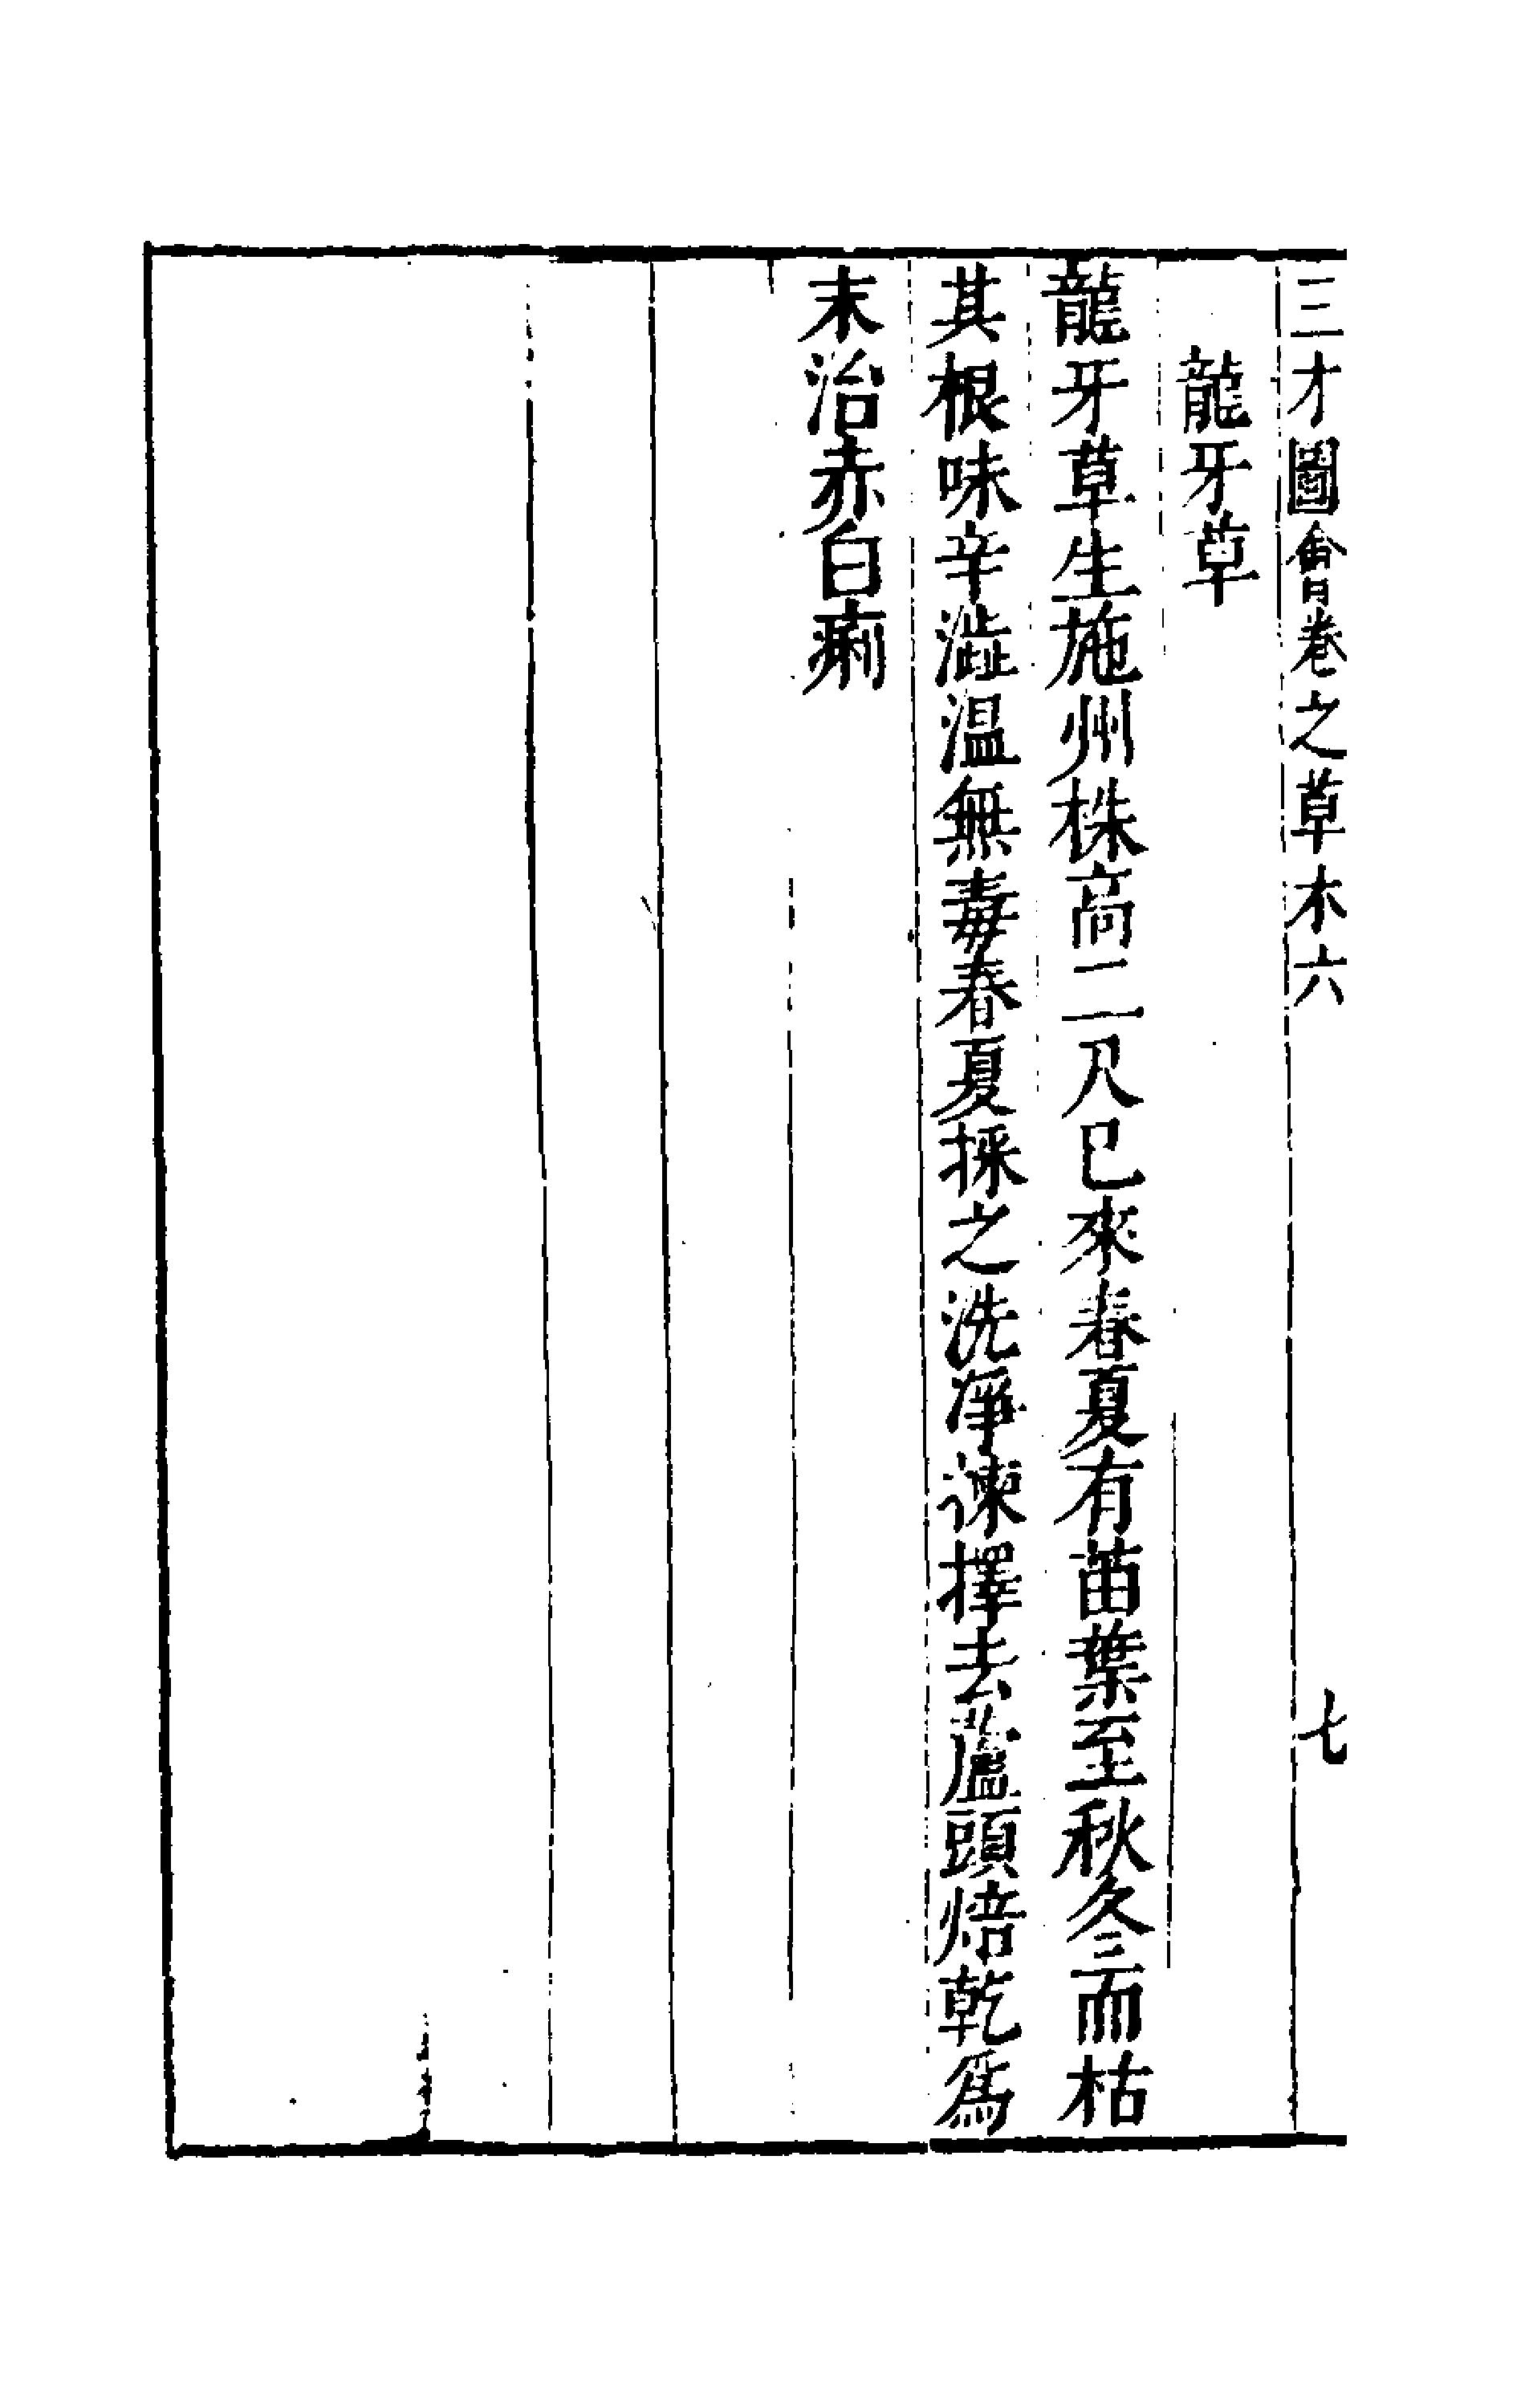 三才圖會卷之草木六 七
龍牙草
龍牙草生施州株高二尺已來春夏有苗葉至秋冬而枯
其根味辛澁温無毒春夏採之洗凈揀擇去蘆頭焙乾爲
末治赤白痢